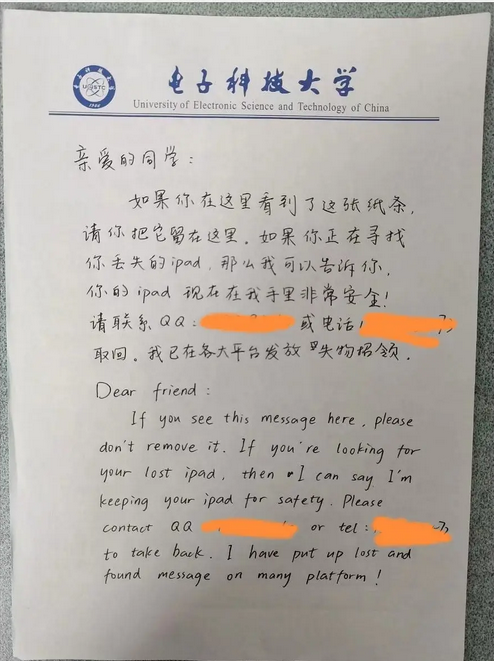 UESTC
1956
电子科技大学
University of Electronic Science and Technology of China
亲爱的同学：
如果你在这里看到了这张纸条，
请你把它留在这里。如果你正在寻找
你丢失的ipad，那么我可以告诉你，
你的ipad 现在在我手里非常安全！
请联系QQ： 或电话：
取回。我已在各大平台发放失物招领。
Dear friend：
If you see this message here, please
don't remove it. If you're looking for
your lost ipad, then I can say I'm
keeping your ipad for safety. Please
contact QQ or tel:
to take back. I have put up lost and
found message on many platform!